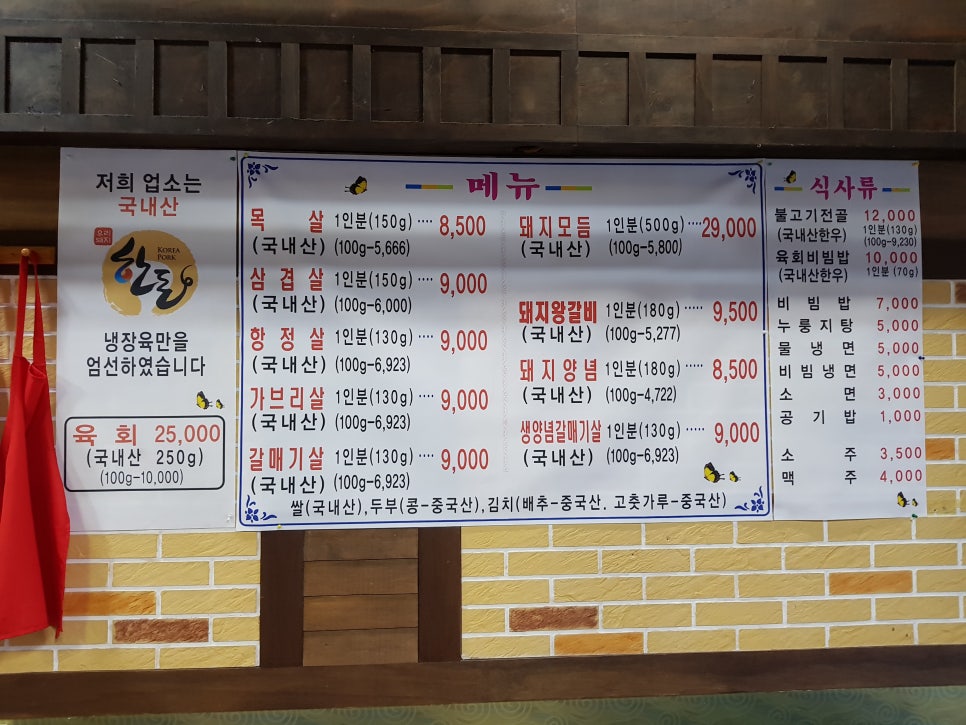 저희 업소는
국내산
요리
돼지
한돈
KOREA
PORK
냉장육만을
엄선하였습니다
육 회 25,000
(국내산 250g)
(100g-10,000)
메뉴
목 살 1인분(150g) ···· 8,500
(국내산) (100g-5,666)
삼겹살 1인분(150g) ···· 9,000
(국내산) (100g-6,000)
항정살 1인분(130g) ···· 9,000
(국내산) (100g-6,923)
가브리살 1인분(130g) ···· 9,000
(국내산) (100g-6,923)
갈매기살 1인분(130g) ···· 9,000
(국내산) (100g-6,923)
돼지모듬 1인분(500g) ···· 29,000
(국내산) (100g-5,800)
돼지왕갈비 1인분(180g) ···· 9,500
(국내산) (100g-5,277)
돼지양념 1인분(180g) ···· 8,500
(국내산) (100g-4,722)
생양념갈매기살 1인분(130g) ···· 9,000
(국내산) (100g-6,923)
쌀(국내산),두부(콩-중국산),김치(배추-중국산. 고춧가루-중국산)
식사류
불고기전골 12,000
(국내산한우) 1인분(130g)
(100g-9,230)
육회비빔밥 10,000
(국내산한우) 1인분 (70g)
비빔밥 7,000
누룽지탕 5,000
물냉면 5,000
비빔냉면 5,000
소면 3,000
공기밥 1,000
소주 3,500
맥주 4,000